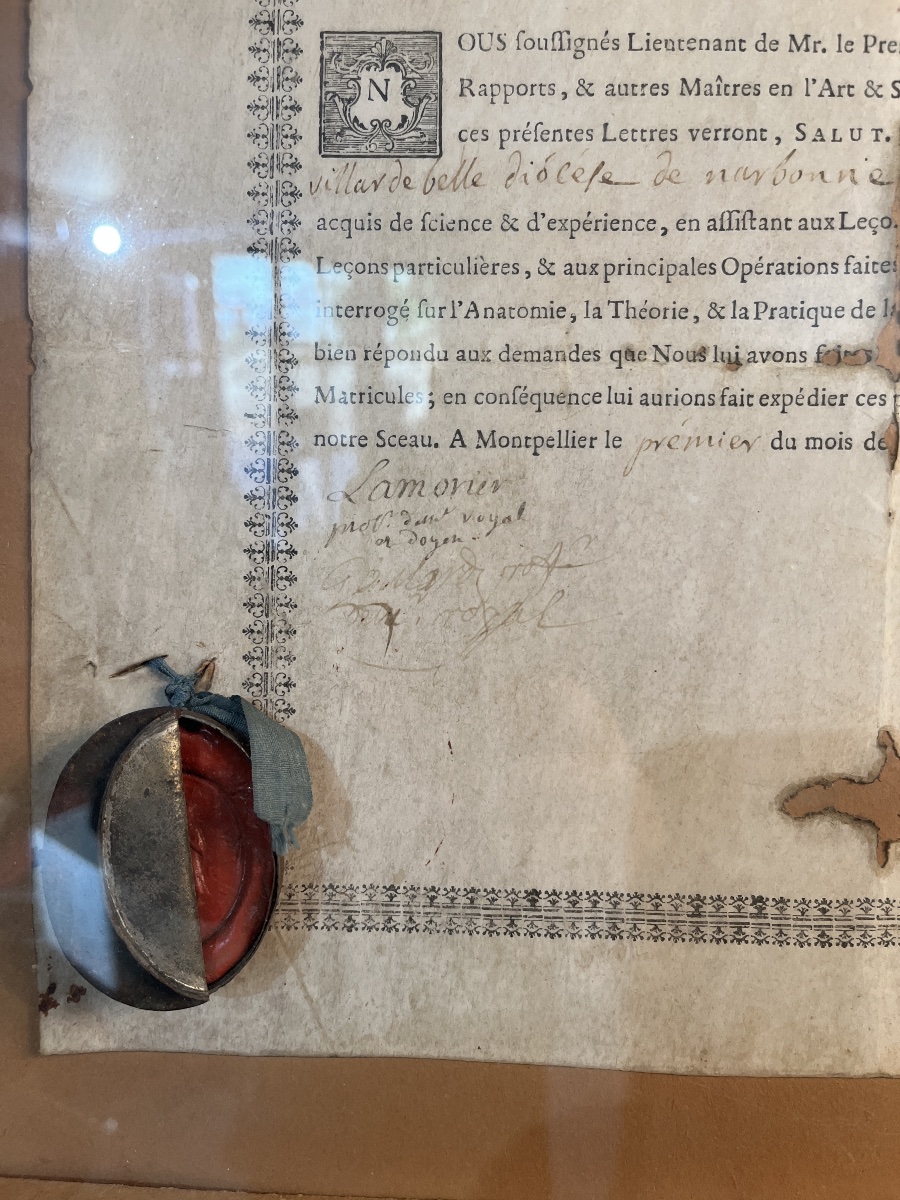 NOUS souſſignés Lieutenant de Mr. le Pre
Rapports, & autres Maîtres en l'Art & S
ces préſentes Lettres verront, SALUT.
villardebelle diócéſe de narbonne
acquis de ſcience & d'expérience, en aſſiſtant aux Leço
Leçons particulières, & aux principales Opérations faites
interrogé ſur l'Anatomie, la Théorie, & la Pratique de la
bien répondu aux demandes que Nous lui avons faites
Matricules; en conſéquence lui aurions fait expédier ces p
notre Sceau. A Montpellier le prémier du mois de
Lamorier
royal
et doyen
Goulard
royal